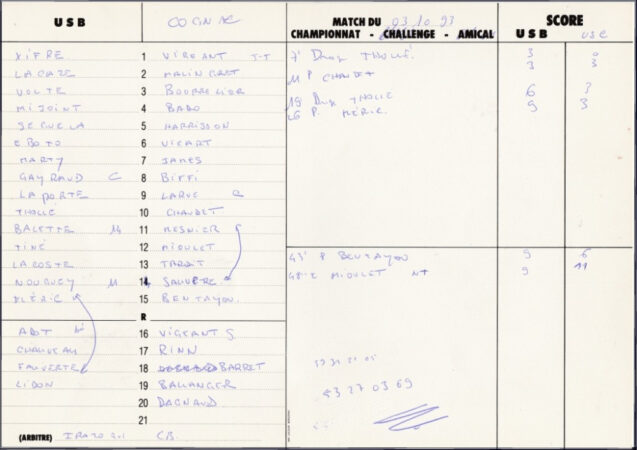 U S B COGNAC
XIFRE 1 VIGEANT J-J
LACAZE 2 MALINGRET
VOLTE 3 BOURRELIER
MIJOINT 4 BABO
SEGUELA 5 HARRISSON
EBOTO 6 VICART
MARTY 7 JAMES
GAYRAUD C 8 BIFFI
LAPORTE 9 LARUE C
THOLLE 10 CHAUDET
BALETTE 11 RESNIER
TINÉ 12 MIOULET
LACOSTE 13 TARDIT
NOUGUEY 14 SAUVÈRE
MÉRIC 15 BENTAYOU
R
ABOT 16 VIGEANT S
CHANDEAU 17 RINN
FAUVERTE 18 BARRET
LIDON 19 BALLANGER
20 DAGNAUD
21
(ARBITRE) C.B.
MATCH DU 03.10.93
CHAMPIONNAT - CHALLENGE - AMICAL
SCORE
U S B USC
7' Drop THOLLÉ. 3 0
11 P CHAUDET 3 3
19 Drop THOLLE 6 3
26 P. MÉRIC. 9 3
43' P BENTAYOU 9 6
48' E MIOULET NT 9 11
53 27 03 69